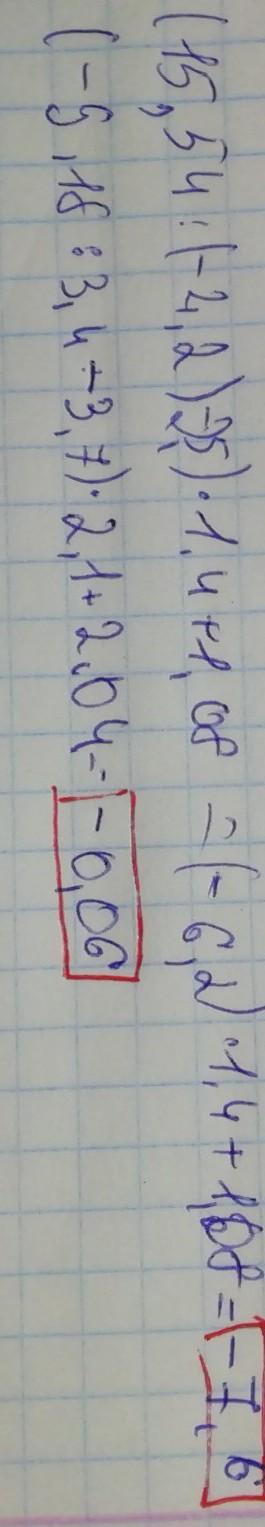 (15,54 : (-4,2) -2,5) · 1,4 + 1,08 = (-6,2) · 1,4 + 1,08 = -7,6
(-9,18 : 3,4 + 3,7) · 2,1 + 2,04 = -0,06